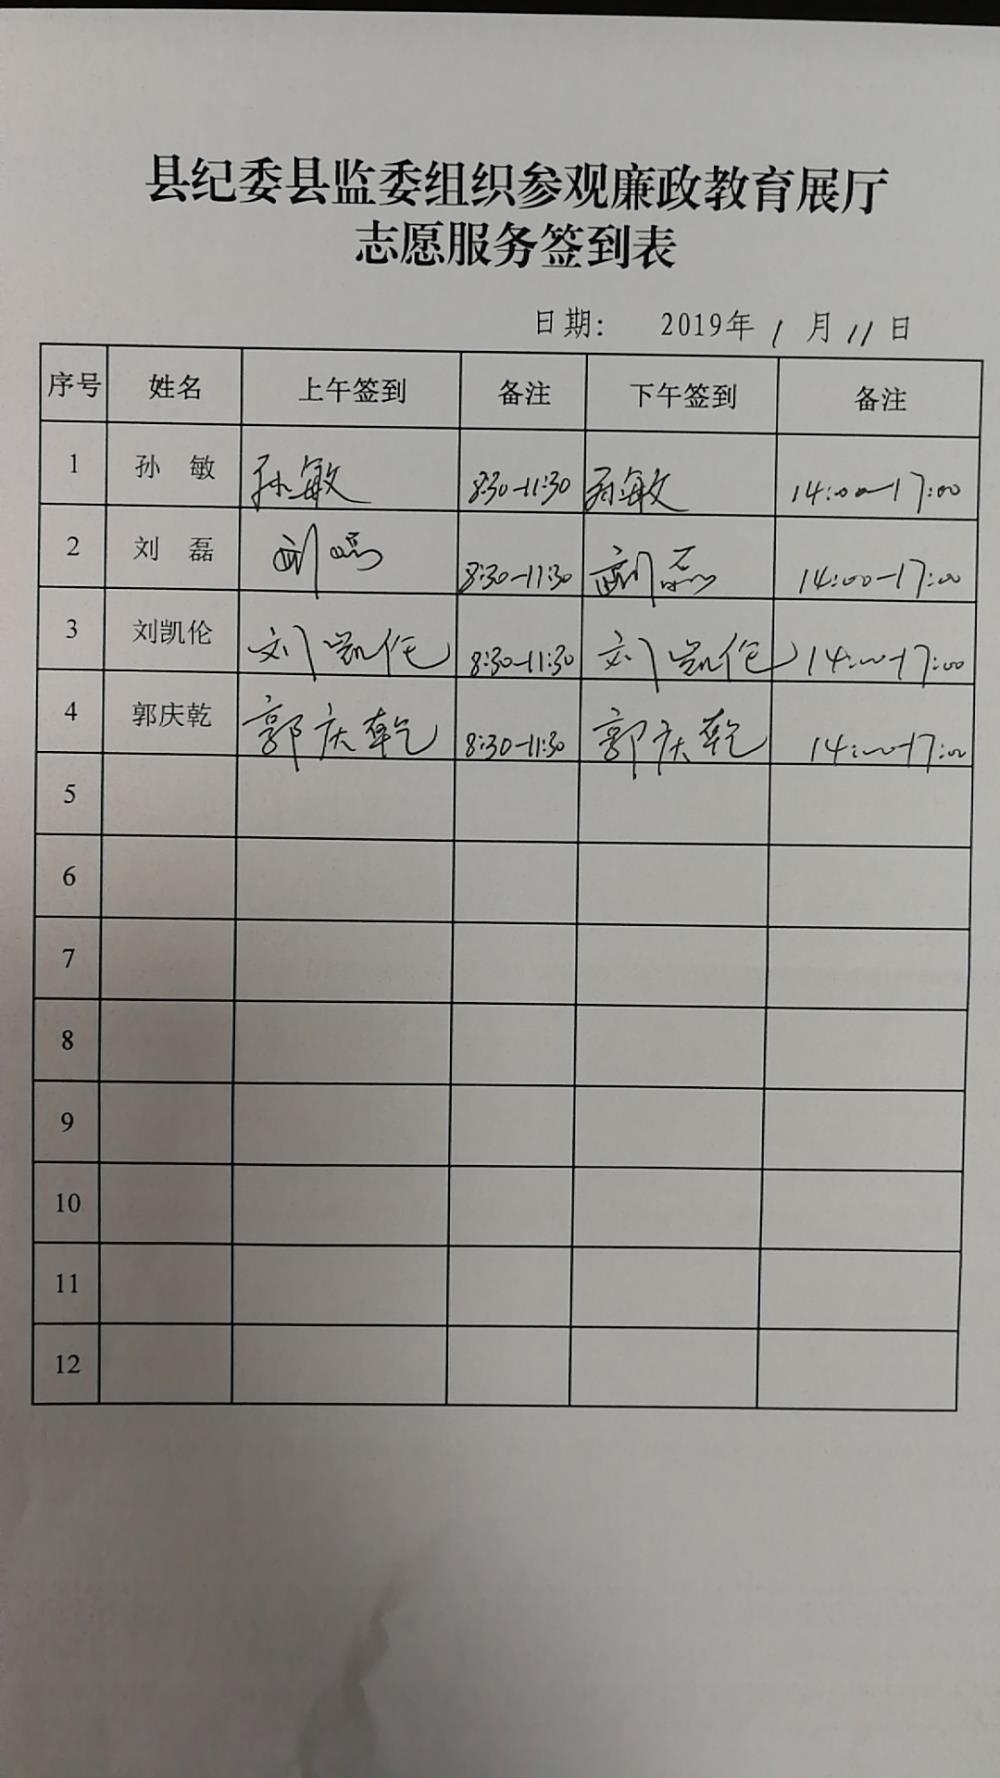 县纪委县监委组织参观廉政教育展厅
志愿服务签到表
日期： 2019年 1 月 11 日
序号 姓名 上午签到 备注 下午签到 备注
1 孙 敏 孙敏 8:30-11:30 孙敏 14:00-17:00
2 刘 磊 刘磊 8:30-11:30 刘磊 14:00-17:00
3 刘凯伦 刘凯伦 8:30-11:30 刘凯伦 14:00-17:00
4 郭庆乾 郭庆乾 8:30-11:30 郭庆乾 14:00-17:00
5
6
7
8
9
10
11
12